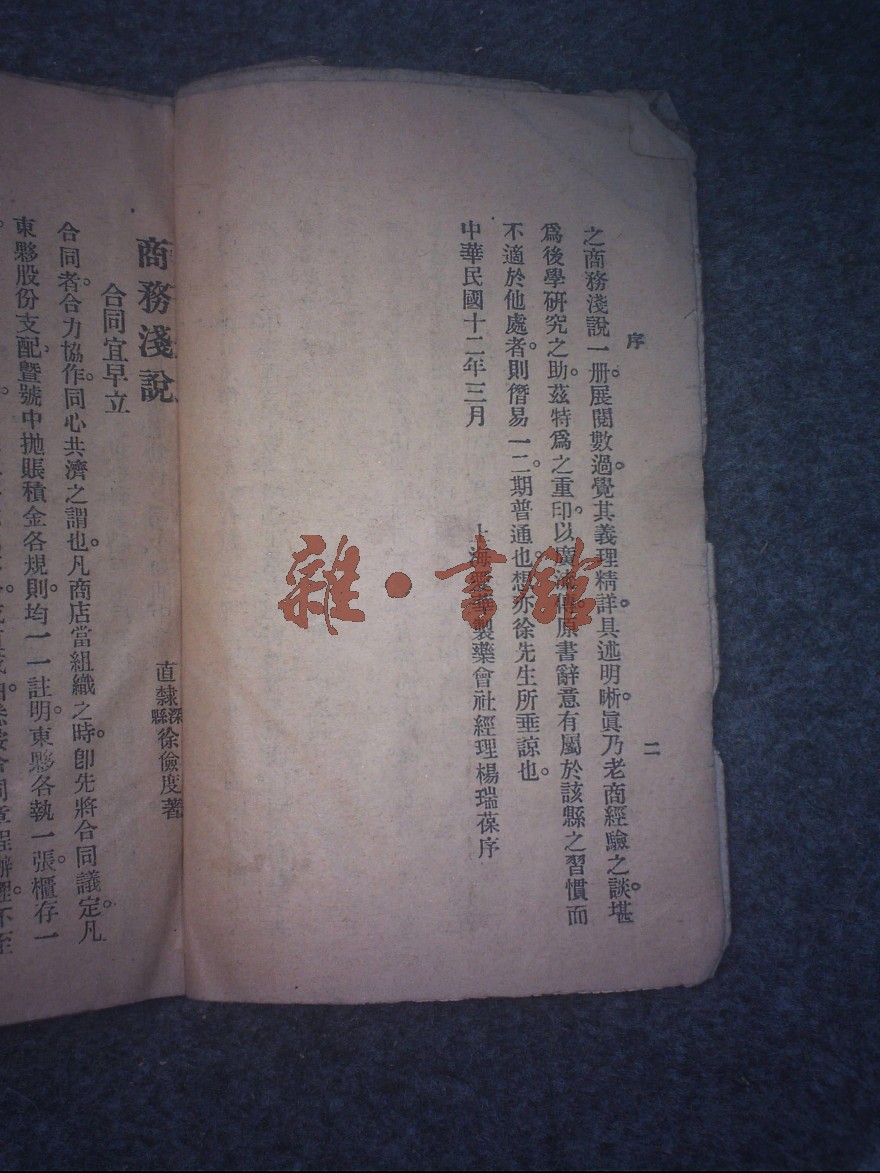 序
二
之商務淺說一册。展閱數過。覺其義理精詳。具述明晰。眞乃老商經驗之談。堪
爲後學研究之助。茲特爲之重印。以廣流傳。原書辭意有屬於該縣之習慣而
不適於他處者。則僭易一二。期普通也。想亦徐先生所垂諒也。
中華民國十二年三月
上海愛華製藥會社經理楊瑞葆序
商務淺說
直隸深縣徐儉度著
合同宜早立
合同者。合力協作。同心共濟之謂也。凡商店當組織之時。卽先將合同議定。凡
東夥股份支配。曁號中抛賬積金各規則。均一一註明。東夥各執一張。櫃存一
雜·書館